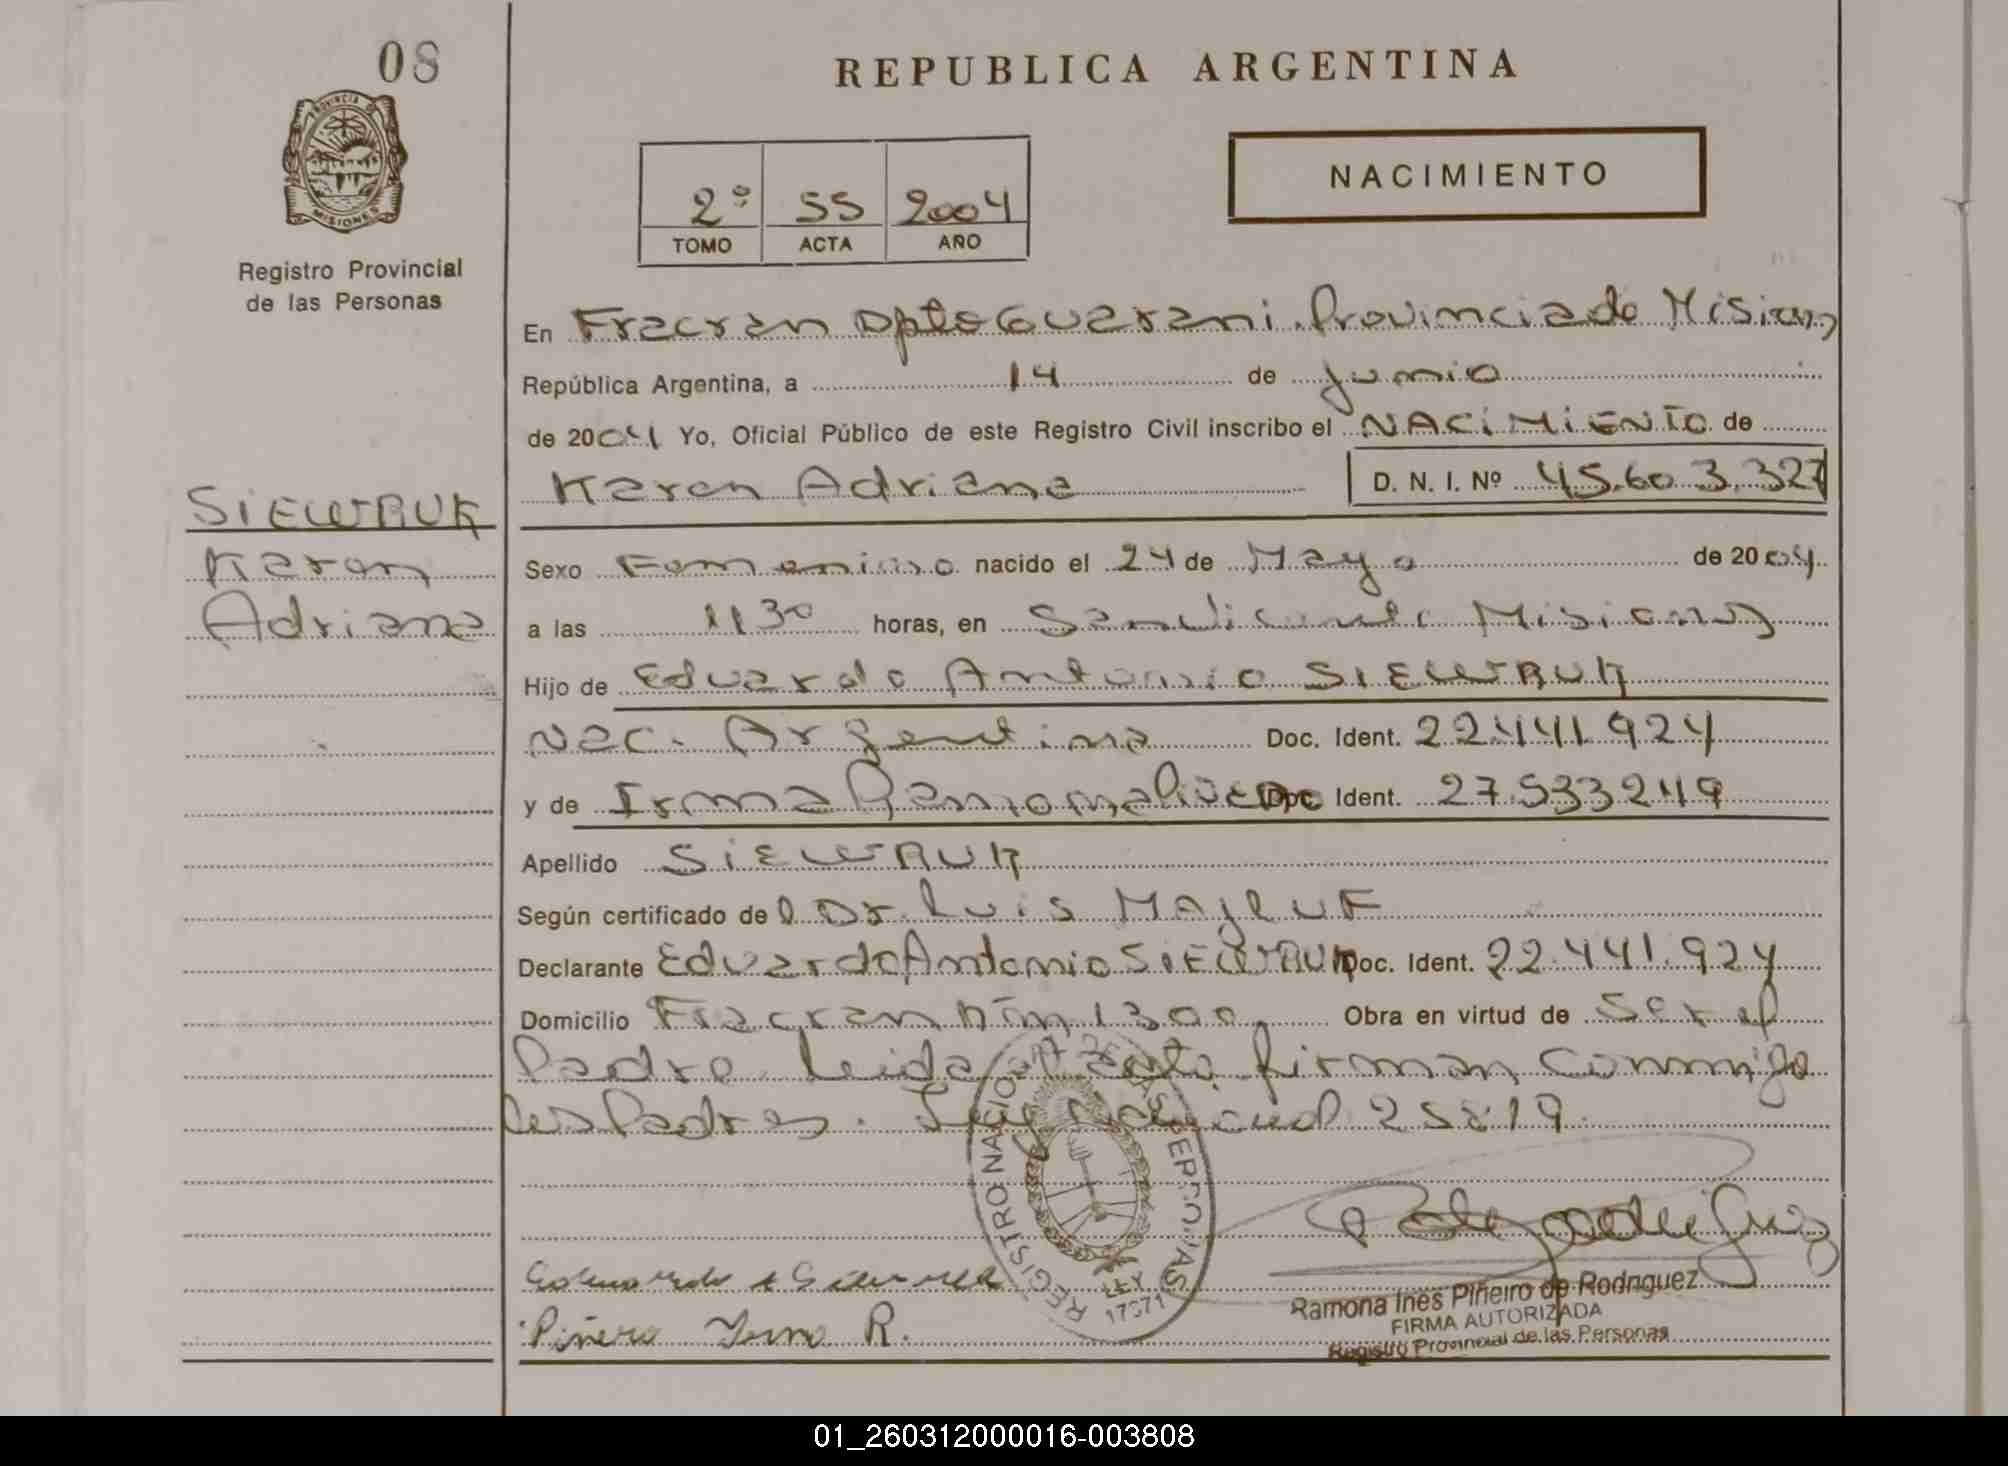 08
REPUBLICA ARGENTINA
PROVINCIA DE
MISIONES
Registro Provincial
de las Personas
NACIMIENTO
2º 55 2004
TOMO ACTA AÑO
En Fracran Dpto Guarani Provincia de Misiones
República Argentina, a 14 de junio
de 2004 Yo, Oficial Público de este Registro Civil inscribo el NACIMIENTO de
Karen Adriana D. N. I. Nº 45.603.327
SIEWRUK
Karen
Adriana
Sexo Femenino nacido el 24 de Mayo de 2004
a las 1130 horas, en San Vicente Misiones
Hijo de Eduardo Antonio SIEWRUK
Nac. Argentina Doc. Ident. 22.441.924
y de Irma Doc. Ident. 27.533249
Apellido SIEWRUK
Según certificado de Dr. Luis MAJLUF
Declarante Eduardo Antonio SIEWRUK Doc. Ident. 22.441.924
Domicilio Fracran Km 1300 Obra en virtud de Ser el
Padre leida el acta firman conmigo
los Padres. 25819
REGISTRO NACIONAL DE LAS PERSONAS
LEY
17671
Piñero Irma R.
Ramona Inés Piñeiro de Rodriguez
FIRMA AUTORIZADA
Registro Provincial de las Personas
01_260312000016-003808